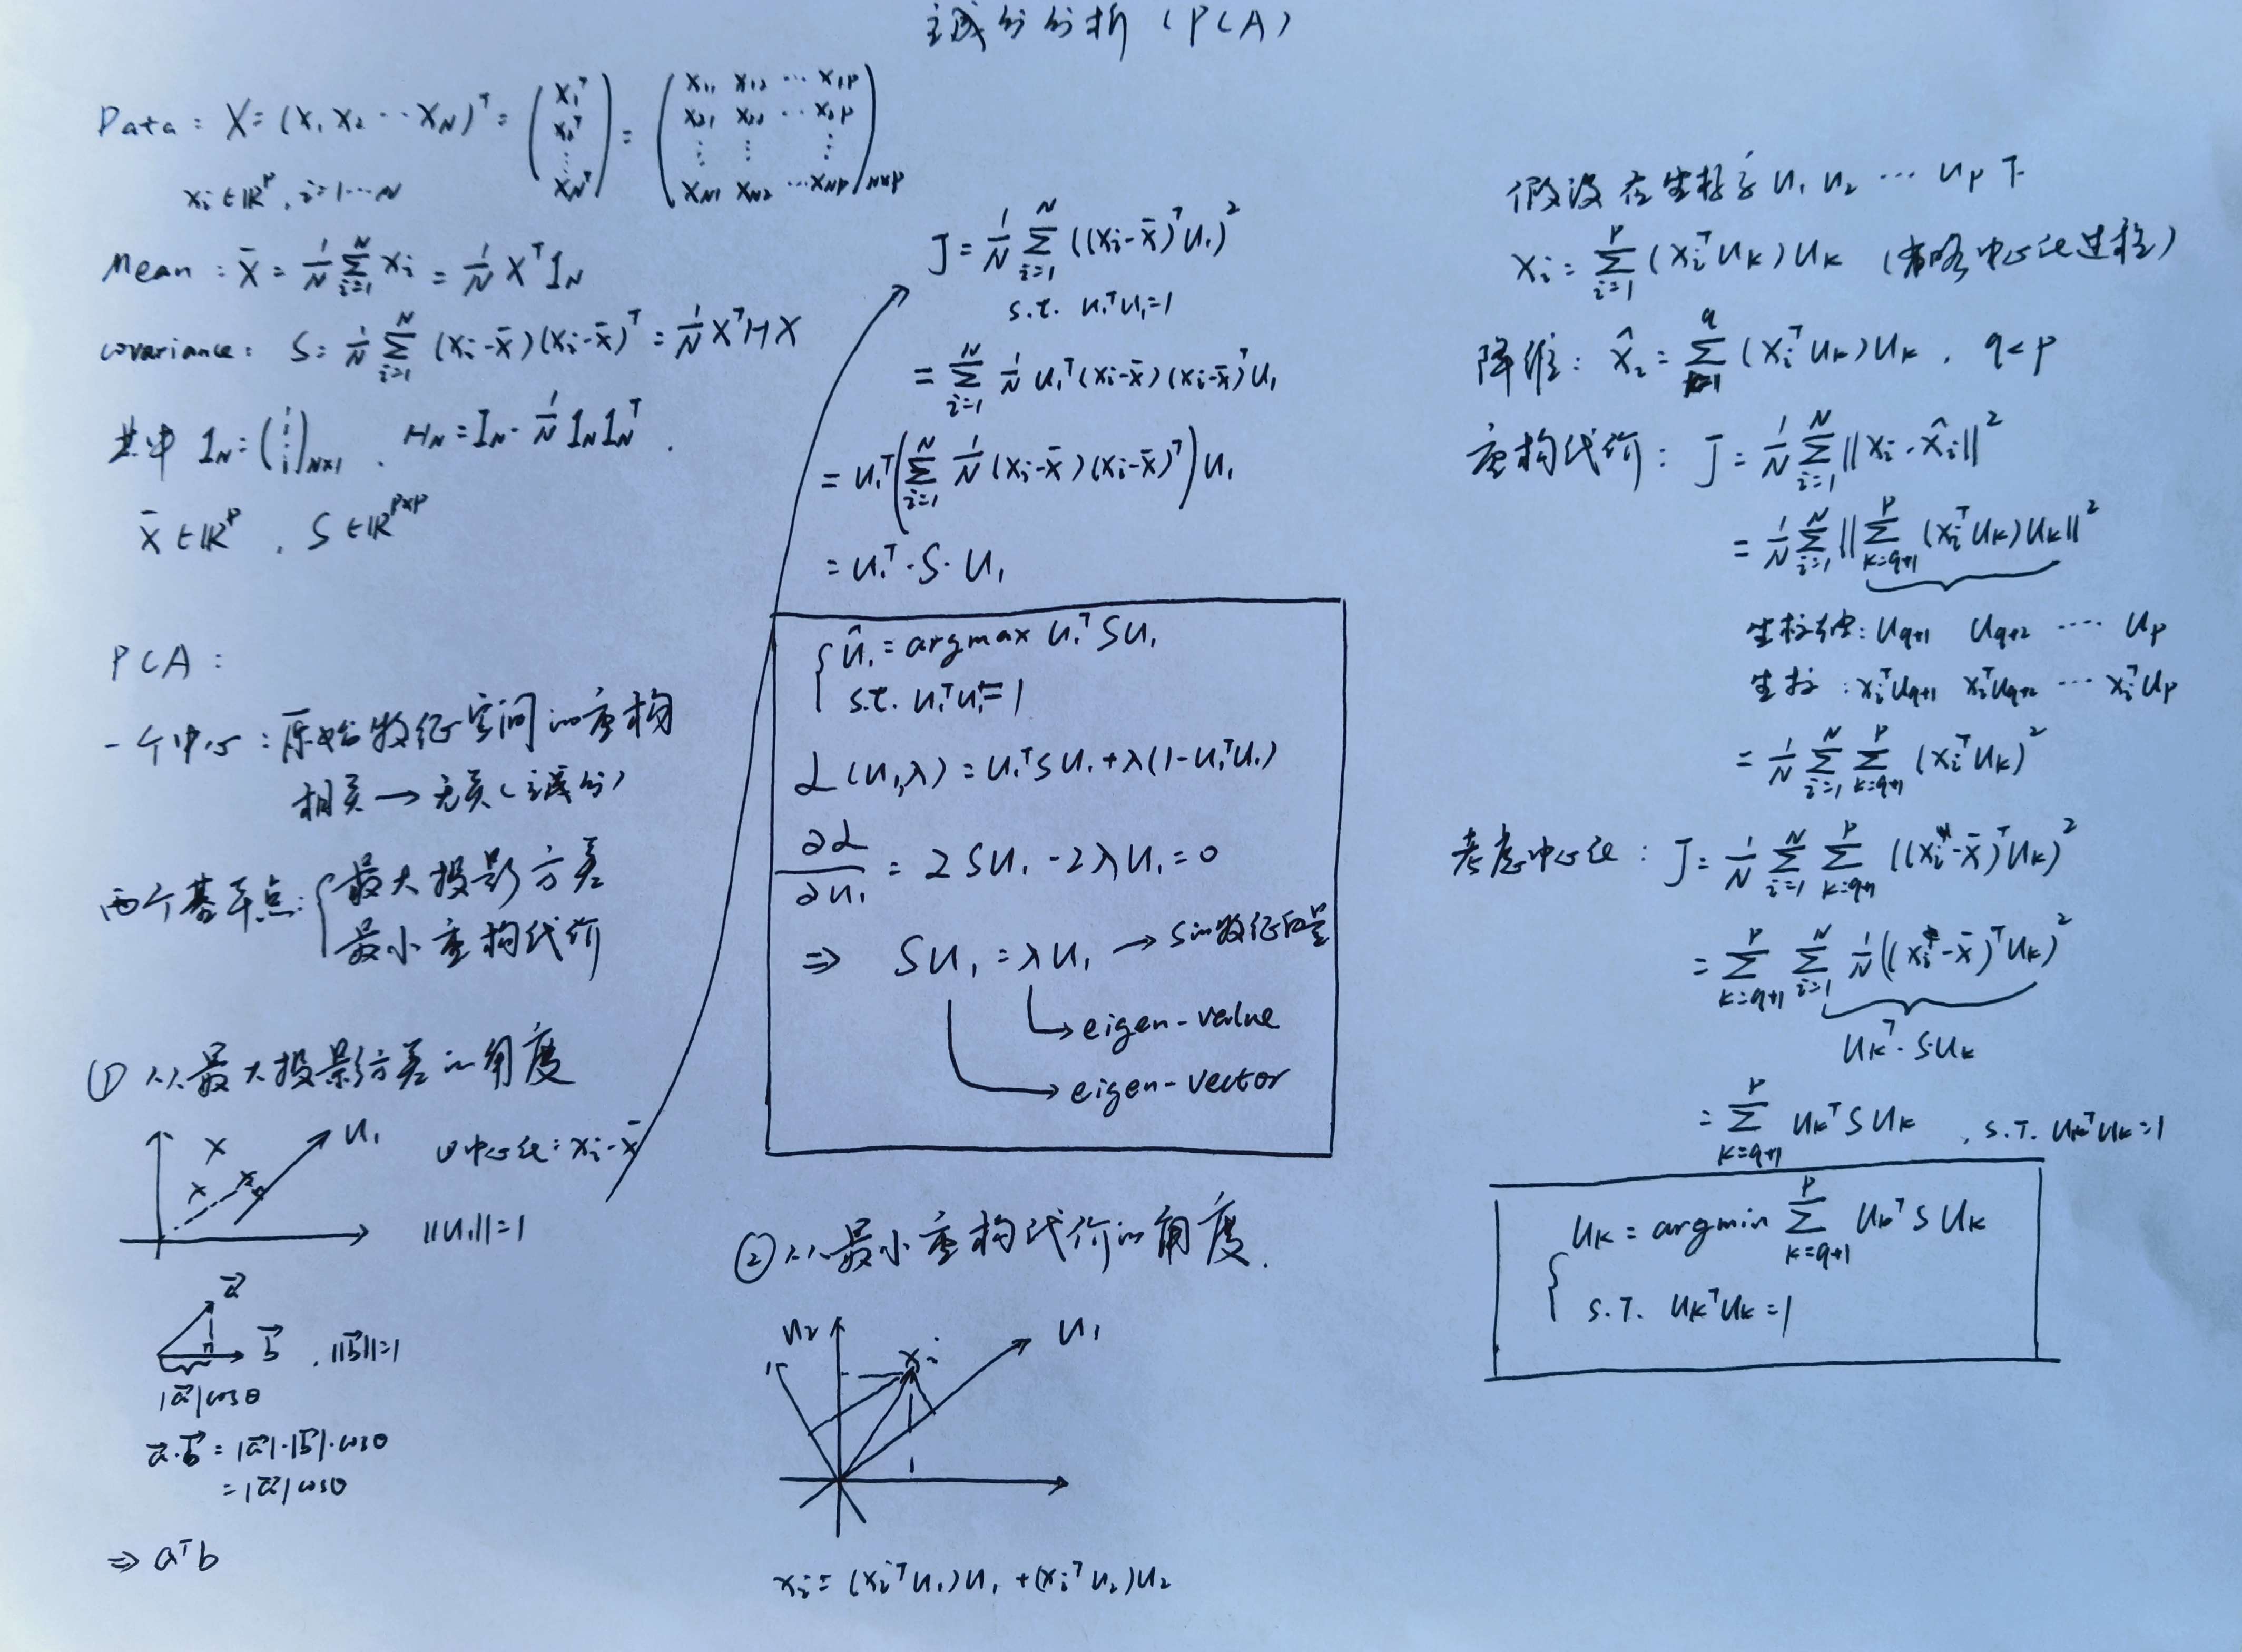 主成分分析（PCA）
Data：X=(x₁ x₂ ⋯ x_N)ᵀ = (x₁ᵀ x₂ᵀ ⋮ x_Nᵀ) = (x₁₁ x₁₂ ⋯ x₁p
x₂₁ x₂₂ ⋯ x₂p
⋮ ⋮ ⋮
x_N1 x_N2 ⋯ x_Np)_N×p
xᵢ∈ℝᵖ, i=1⋯N
Mean：x̄ = 1/N ∑_{i=1}^N xᵢ = 1/N Xᵀ 1_N
covariance：S = 1/N ∑_{i=1}^N (xᵢ-x̄)(xᵢ-x̄)ᵀ = 1/N XᵀHX
其中 1_N=(1 ⋮ 1)_N×1 , H_N = I_N - 1/N 1_N 1_Nᵀ .
x̄∈ℝᵖ , S∈ℝ^{p×p}
PCA：
一个中心：原始特征空间的重构
相关→无关（主成分）
两个基本点：{最大投影方差
最小重构代价
① 从最大投影方差的角度
x
u₁
中心化：xᵢ-x̄
x
x
||u₁||=1
a⃗
b⃗ , ||b⃗||=1
|a⃗|cosθ
a⃗·b⃗ = |a⃗|·|b⃗|·cosθ
= |a⃗|cosθ
⇒ aᵀb
J = 1/N ∑_{i=1}^N ((xᵢ-x̄)ᵀu₁)²
s.t. u₁ᵀu₁=1
= ∑_{i=1}^N 1/N u₁ᵀ(xᵢ-x̄)(xᵢ-x̄)ᵀu₁
= u₁ᵀ(∑_{i=1}^N 1/N (xᵢ-x̄)(xᵢ-x̄)ᵀ)u₁
= u₁ᵀ·S·u₁
{û₁ = argmax u₁ᵀSu₁
s.t. u₁ᵀu₁=1
ℒ(u₁,λ) = u₁ᵀSu₁+λ(1-u₁ᵀu₁)
∂ℒ/∂u₁ = 2Su₁ - 2λu₁ = 0
⇒ Su₁ = λu₁ → S的特征向量
→ eigen-value
→ eigen-vector
② 从最小重构代价的角度.
u₂
xᵢ
u₁
xᵢ = (xᵢᵀu₁)u₁ + (xᵢᵀu₂)u₂
假设在坐标系 u₁ u₂ ⋯ u_p 下
xᵢ = ∑_{i=1}^p (xᵢᵀu_k)u_k （省略中心化过程）
降维：x̂ᵢ = ∑_{k=1}^q (xᵢᵀu_k)u_k , q<p
重构代价：J = 1/N ∑_{i=1}^N ||xᵢ-x̂ᵢ||²
= 1/N ∑_{i=1}^N ||∑_{k=q+1}^p (xᵢᵀu_k)u_k||²
坐标轴：u_{q+1} u_{q+2} ⋯ u_p
坐标：xᵢᵀu_{q+1} xᵢᵀu_{q+2} ⋯ xᵢᵀu_p
= 1/N ∑_{i=1}^N ∑_{k=q+1}^p (xᵢᵀu_k)²
考虑中心化：J = 1/N ∑_{i=1}^N ∑_{k=q+1}^p ((xᵢ-x̄)ᵀu_k)²
= ∑_{k=q+1}^p ∑_{i=1}^N 1/N ((xᵢ-x̄)ᵀu_k)²
u_kᵀ·S·u_k
= ∑_{k=q+1}^p u_kᵀSu_k , s.T. u_kᵀu_k=1
{u_k = argmin ∑_{k=q+1}^p u_kᵀSu_k
s.T. u_kᵀu_k=1